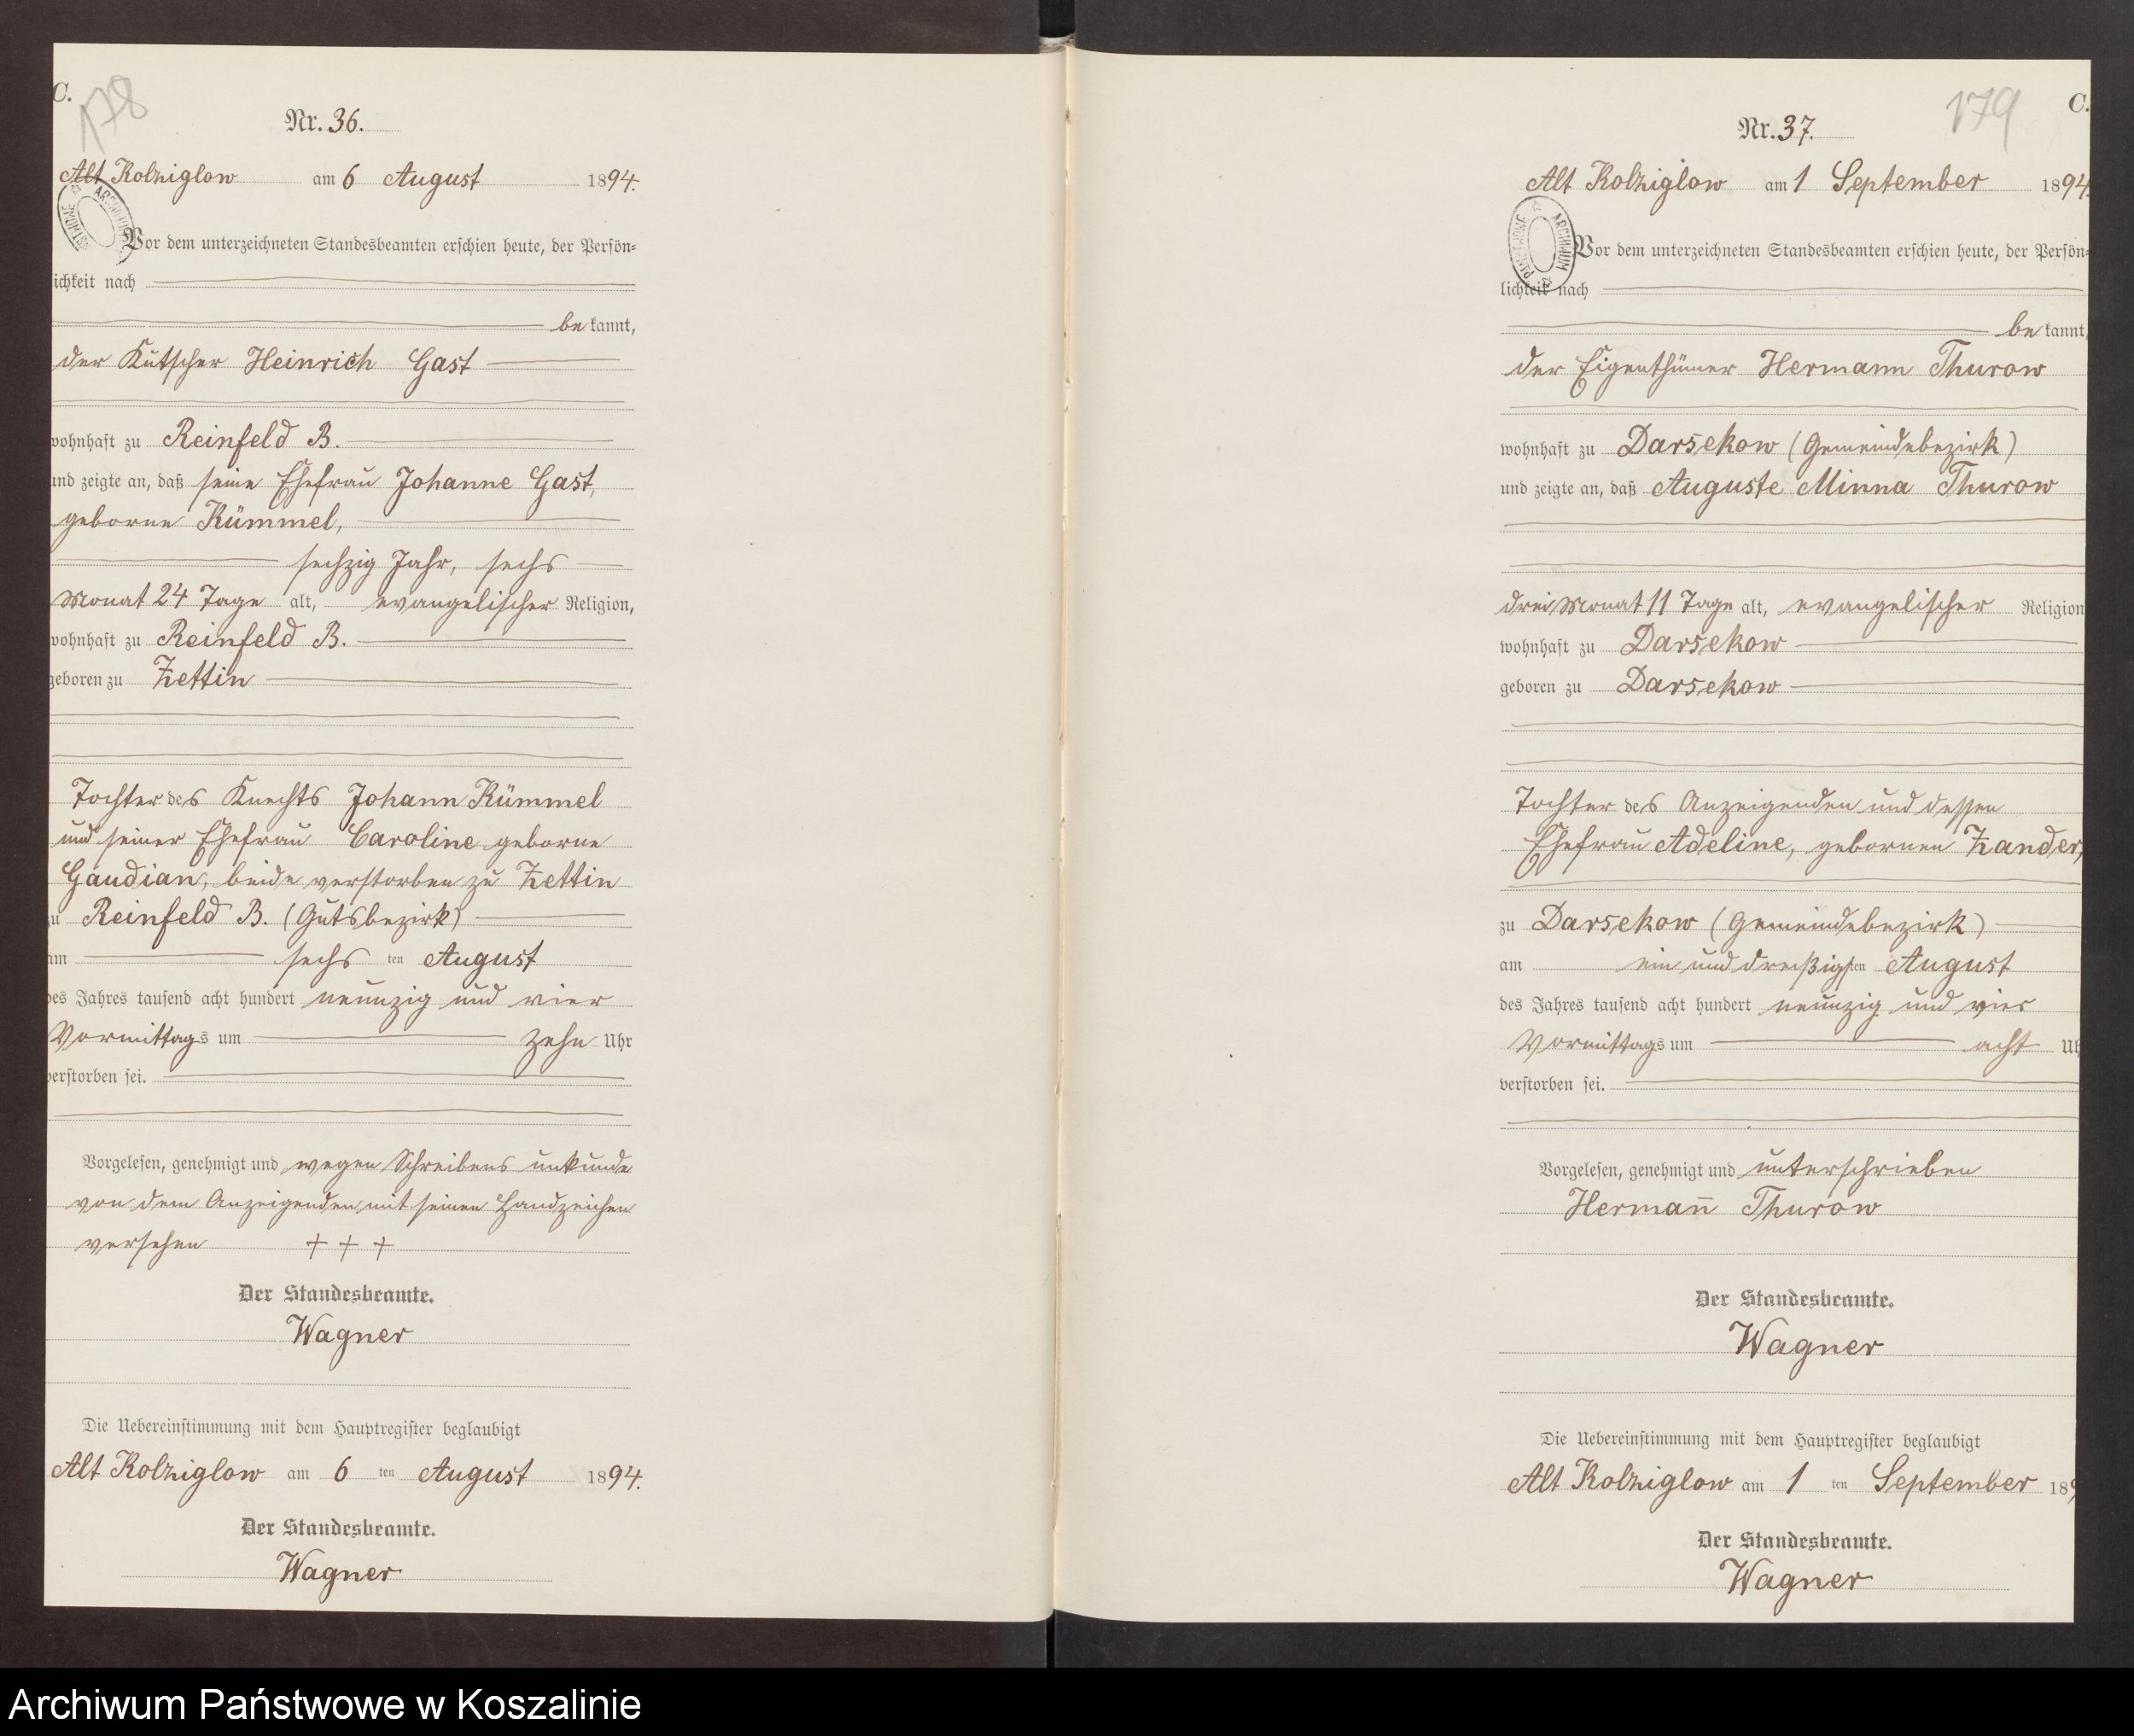 C.
178
Nr. 36.
Alt Kolziglow am 6 August 1894.
Vor dem unterzeichneten Standesbeamten erschien heute, der Persön-
ichkeit nach
be kannt,
der Kutscher Heinrich Gast
wohnhaft zu Reinfeld B.
und zeigte an, daß seine Ehefrau Johanne Gast,
geborne Kümmel,
sechzig Jahr, sechs
Monat 24 Tage alt, evangelischer Religion,
wohnhaft zu Reinfeld B.
geboren zu Zettin
Tochter des Knechts Johann Kümmel
und seiner Ehefrau Caroline geborne
Gaudian, beide verstorben zu Zettin
zu Reinfeld B. (Gutsbezirk)
am sechs ten August
des Jahres tausend acht hundert neunzig und vier
Vormittags um zehn Uhr
verstorben sei.
Vorgelesen, genehmigt und wegen Schreibens unkunde
von dem Anzeigenden mit seinen Handzeichen
versehen + + +
Der Standesbeamte.
Wagner
Die Uebereinstimmung mit dem Hauptregister beglaubigt
Alt Kolziglow am 6 ten August 1894.
Der Standesbeamte.
Wagner
179
C.
Nr. 37.
Alt Kolziglow am 1 September 1894
ARCHIWUM PAŃSTWOWE
Vor dem unterzeichneten Standesbeamten erschien heute, der Persön-
lichkeit nach
be kannt,
der Eigenthümer Hermann Thurow
wohnhaft zu Darsekow (Gemeindebezirk)
und zeigte an, daß Auguste Minna Thurow
drei Monat 11 Tage alt, evangelischer Religion
wohnhaft zu Darsekow
geboren zu Darsekow
Tochter des Anzeigenden und dessen
Ehefrau Adeline, gebornen Zander,
zu Darsekow (Gemeindebezirk)
am ein und dreißigsten August
des Jahres tausend acht hundert neunzig und vier
Vormittags um acht Uh
verstorben sei.
Vorgelesen, genehmigt und unterschrieben
Herman̄ Thurow
Der Standesbeamte.
Wagner
Die Uebereinstimmung mit dem Hauptregister beglaubigt
Alt Kolziglow am 1 ten September 189
Der Standesbeamte.
Wagner
Archiwum Państwowe w Koszalinie